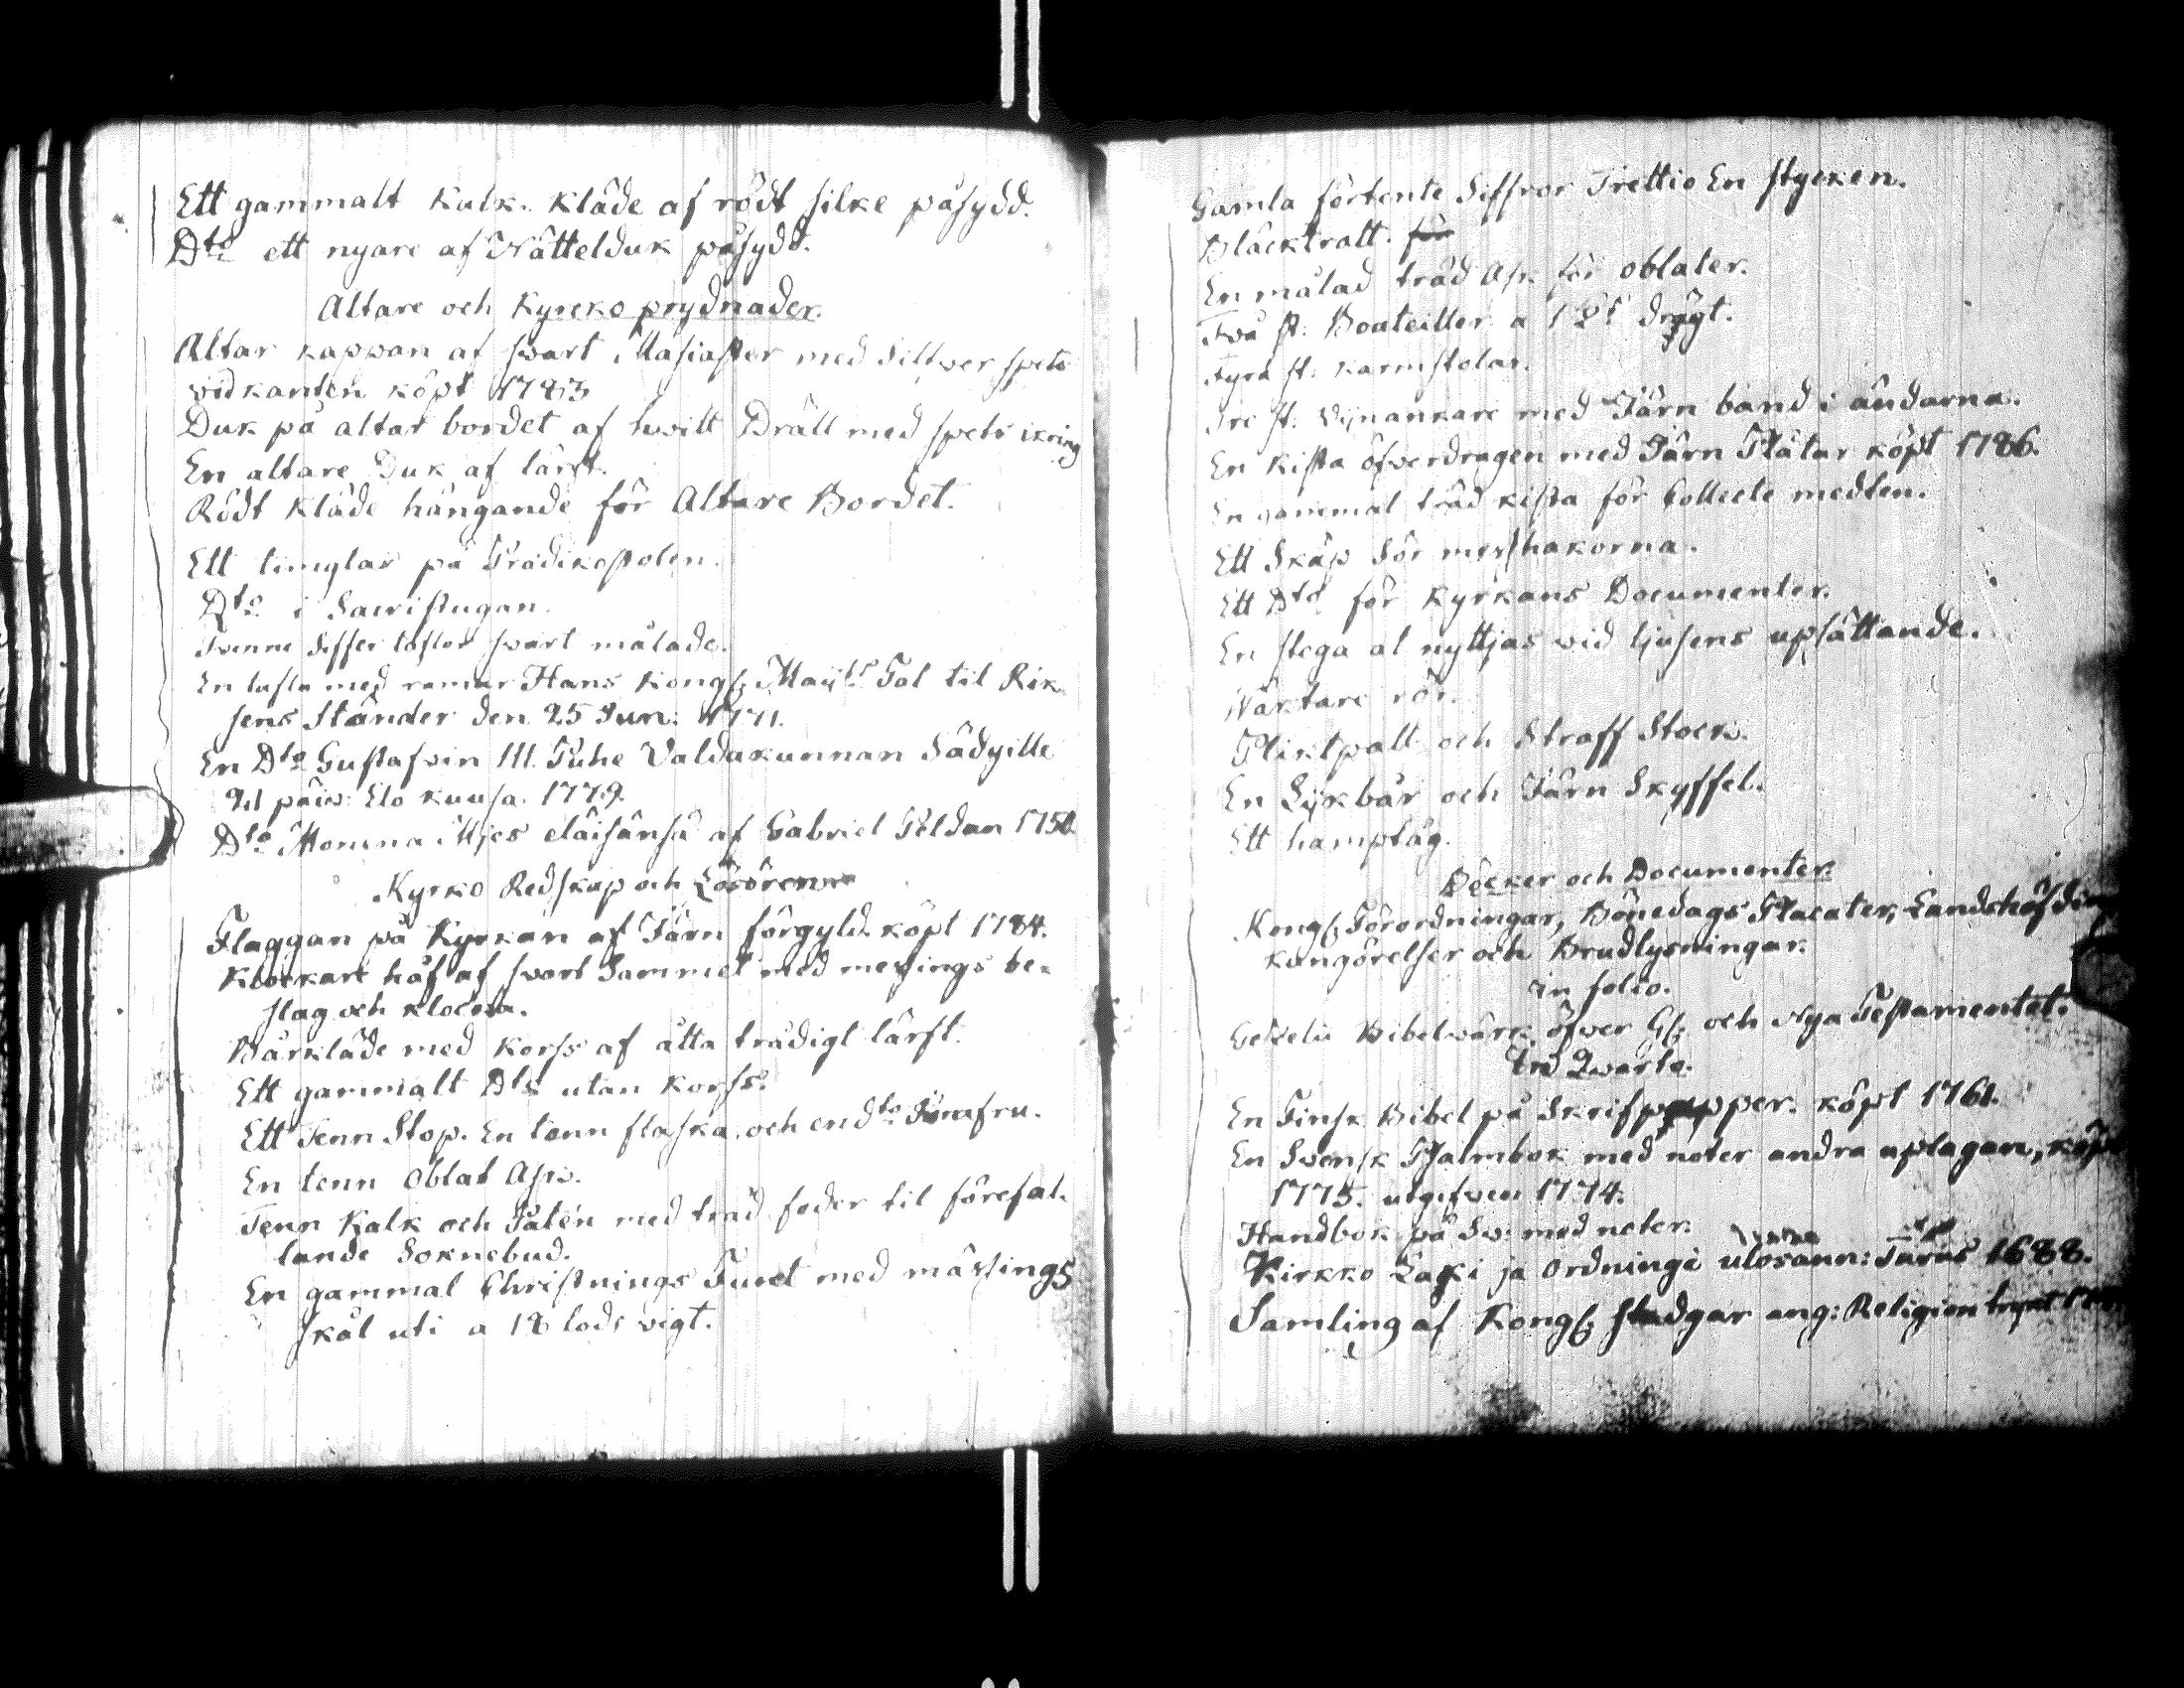 Ett gammalt Kalk. Kläde af rödt silke påsydd.
Dto ett nyare af Nättelduk påsydt.
Altare och Kyrcko prydnader.
Altar kappan af swart Masiaster med Silfwer spets
vid kanten köpt 1783
Duk på altar bordet af hwitt Dräll med spets ikring
En altare Duk af lärft.
Rödt Kläde hängande för Altare Bordet.
Ett timglas på Prädikostolen.
Dto i Sacristugan.
Twenne Siffer taflor swart målade.
En tafla med ramar Hans Kongl. Maijts Tal til Rik-
sens Ständer den 25 Jun: 1771.
En Dto Gustafvin III. Puhe Valdakunnan Säädyille
päiv: Elo kuusa. 1779.
Dto Monina Mjes eläisänsä af Gabriel Peldan 1750.
Kyrko Redskap och Lösören
Flaggan på Kyrkan af Järn förgyld. köpt 1784.
Klockare håf af swart Sammet med messings be-
slag och klocka.
Bårkläde med Korss af åtta trådigt lärft.
Ett gammalt Dto utan Korss.
Ett Tenn Stop. En tenn flaska, och en dto Jomfru.
En tenn Oblat Ask.
Tenn Kalk och Patén med träd foder til förefal-
lande Soknebud.
En gammal Christnings Funt med mässings
skål uti a 18 lods vigt.
Gamla förtente Siffror Trettio En stycken.
Bläcktratt. för
En målad träd Ask för oblater.
Två st: Bouteiller a 1 drägt.
Fyra st: karmstolar.
Tre st: Vijnankare med Järn band i ändarna.
En Kista öfverdragen med Järn Plåtar köpt 1786.
En gammal träd kista för Collecte medlen.
Ett Skåp för messhakorna.
Ett Dto för Kyrkans Documenter.
En stega at nyttjas wid ljusens upsättande.
Wäktare rör.
Pliktpall och Straff Stock.
En Lijkbår och Järn Skyffel.
Ett hamptåg.
Böcker och Documenter.
Kongl. Förordningar, Bönedags Placater, Landshöfdin
kungörelser och Brudlysningar.
in folio.
Gezelii Bibelwärk öfver Gl. och Nya Testamentet.
in Qwarto.
En Finsk Bibel på Skrifpapper. köpt 1761.
En Svensk Psalmbok med noter andra uplagan, köpt
1775. utgifven 1774.
Handbok på Sv: med noter.
Kirkko Laki ja Ordningi ulosann: Turus 1688.
Samling af Kongl. stadgar ang: Religion trykt